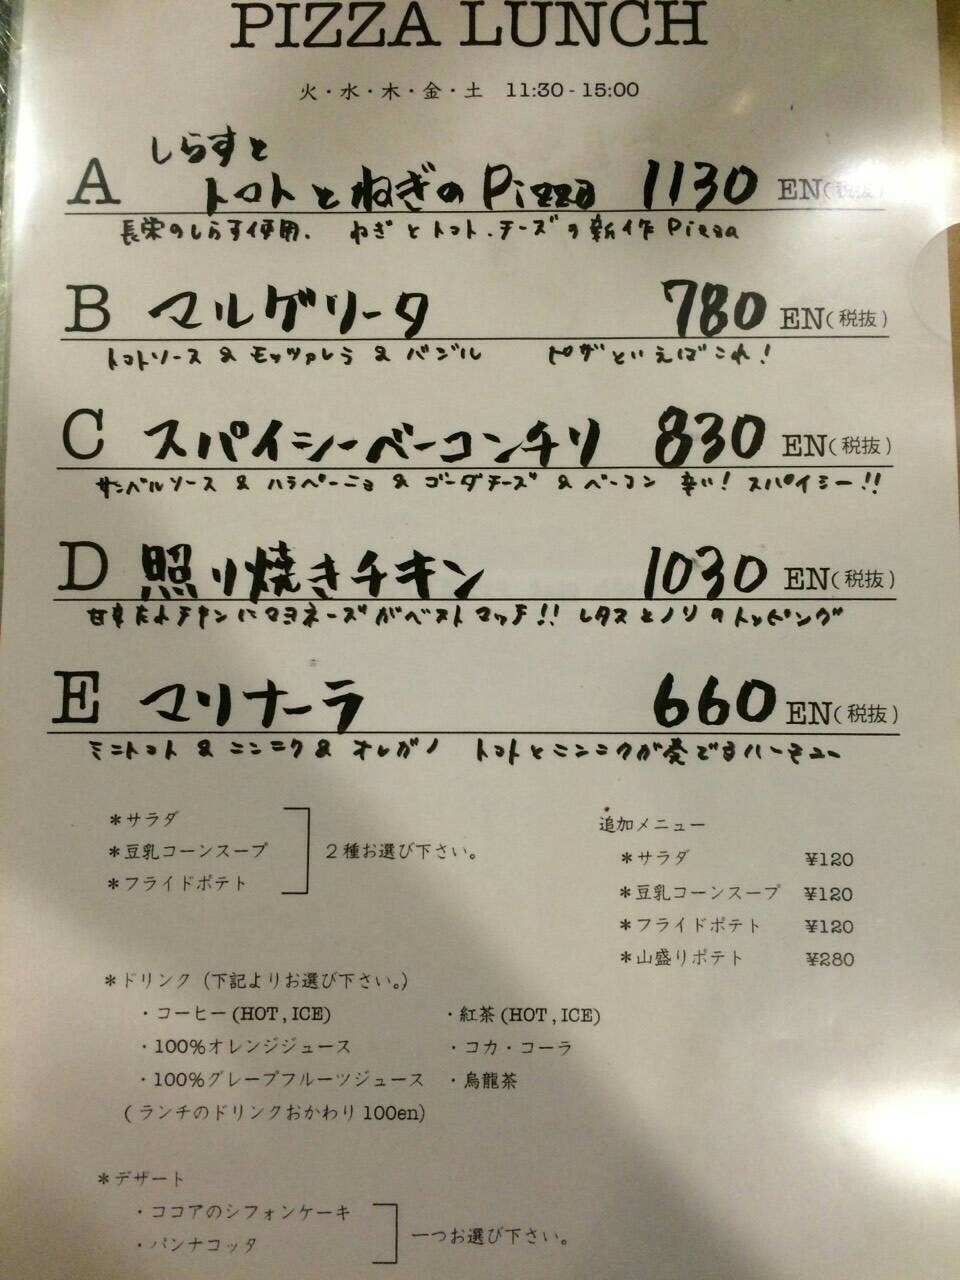 PIZZA LUNCH
火・水・木・金・土 11:30 - 15:00
しらすと
A トマトとねぎのPizza 1130 EN(税抜)
長栄のしらす使用、 ねぎとトマト、チーズの新作Pizza
B マルゲリータ 780 EN(税抜)
トマトソース & モッツァレラ & バジル ピザといえばこれ!
C スパイシーベーコンチリ 830 EN(税抜)
サンバルソース & ハラペーニョ & ゴーダチーズ & ベーコン 辛い! スパイシー!!
D 照り焼きチキン 1030 EN(税抜)
甘辛だれチキンにマヨネーズがベストマッチ!! レタスとノリのトッピング
E マリナーラ 660 EN(税抜)
ミニトマト & ニンニク & オレガノ トマトとニンニクが奏でるハーモニー
*サラダ
*豆乳コーンスープ
*フライドポテト
2種お選び下さい。
追加メニュー
*サラダ ¥120
*豆乳コーンスープ ¥120
*フライドポテト ¥120
*山盛りポテト ¥280
*ドリンク(下記よりお選び下さい。)
・コーヒー(HOT,ICE) ・紅茶(HOT,ICE)
・100%オレンジジュース ・コカ・コーラ
・100%グレープフルーツジュース ・烏龍茶
(ランチのドリンクおかわり100en)
*デザート
・ココアのシフォンケーキ
・パンナコッタ
一つお選び下さい。